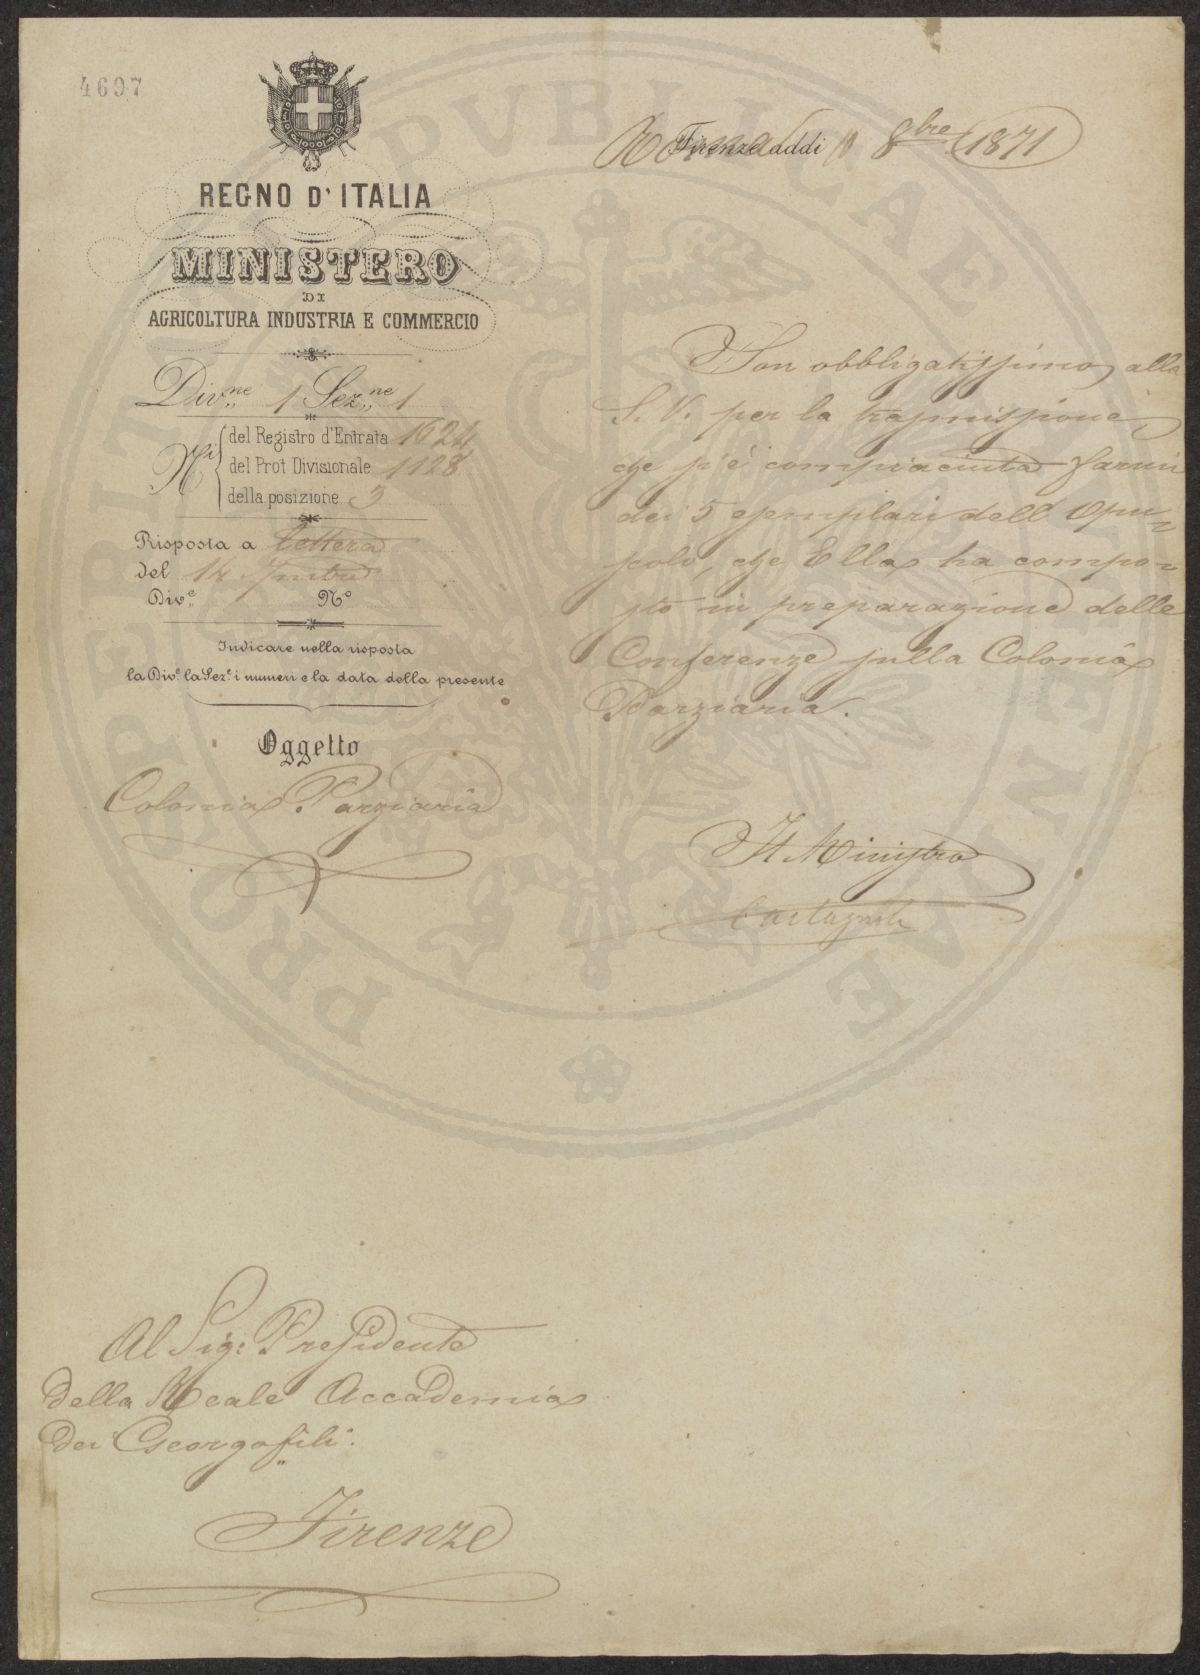 4697
REGNO D'ITALIA
MINISTERO
DI
AGRICOLTURA INDUSTRIA E COMMERCIO
Div.ne 1 Sez.ne 1
N.i
del Registro d'Entrata 1624
del Prot Divisionale 1128
della posizione 3
Risposta a lettera
del 14
Div.e N.o
Indicare nella risposta
la Div.e la Sez.e i numeri e la data della presente
Oggetto
Colonia Parziaria
Roma Firenze addi 8bre 1871
Son obbligatissimo alla
S. V. per la trasmissione,
che s'è compiaciuta farmi
dei 5 esemplari dell'Opu-
scolo, che Ella ha compo-
sto in preparazione delle
Conferenze sulla Colonia
Parziaria.
Il Ministro
Castagnola
Al Sig: Presidente
della Reale Accademia
dei Georgofili.
Firenze
PROSPERITATI PUBLICAE AUGENDAE